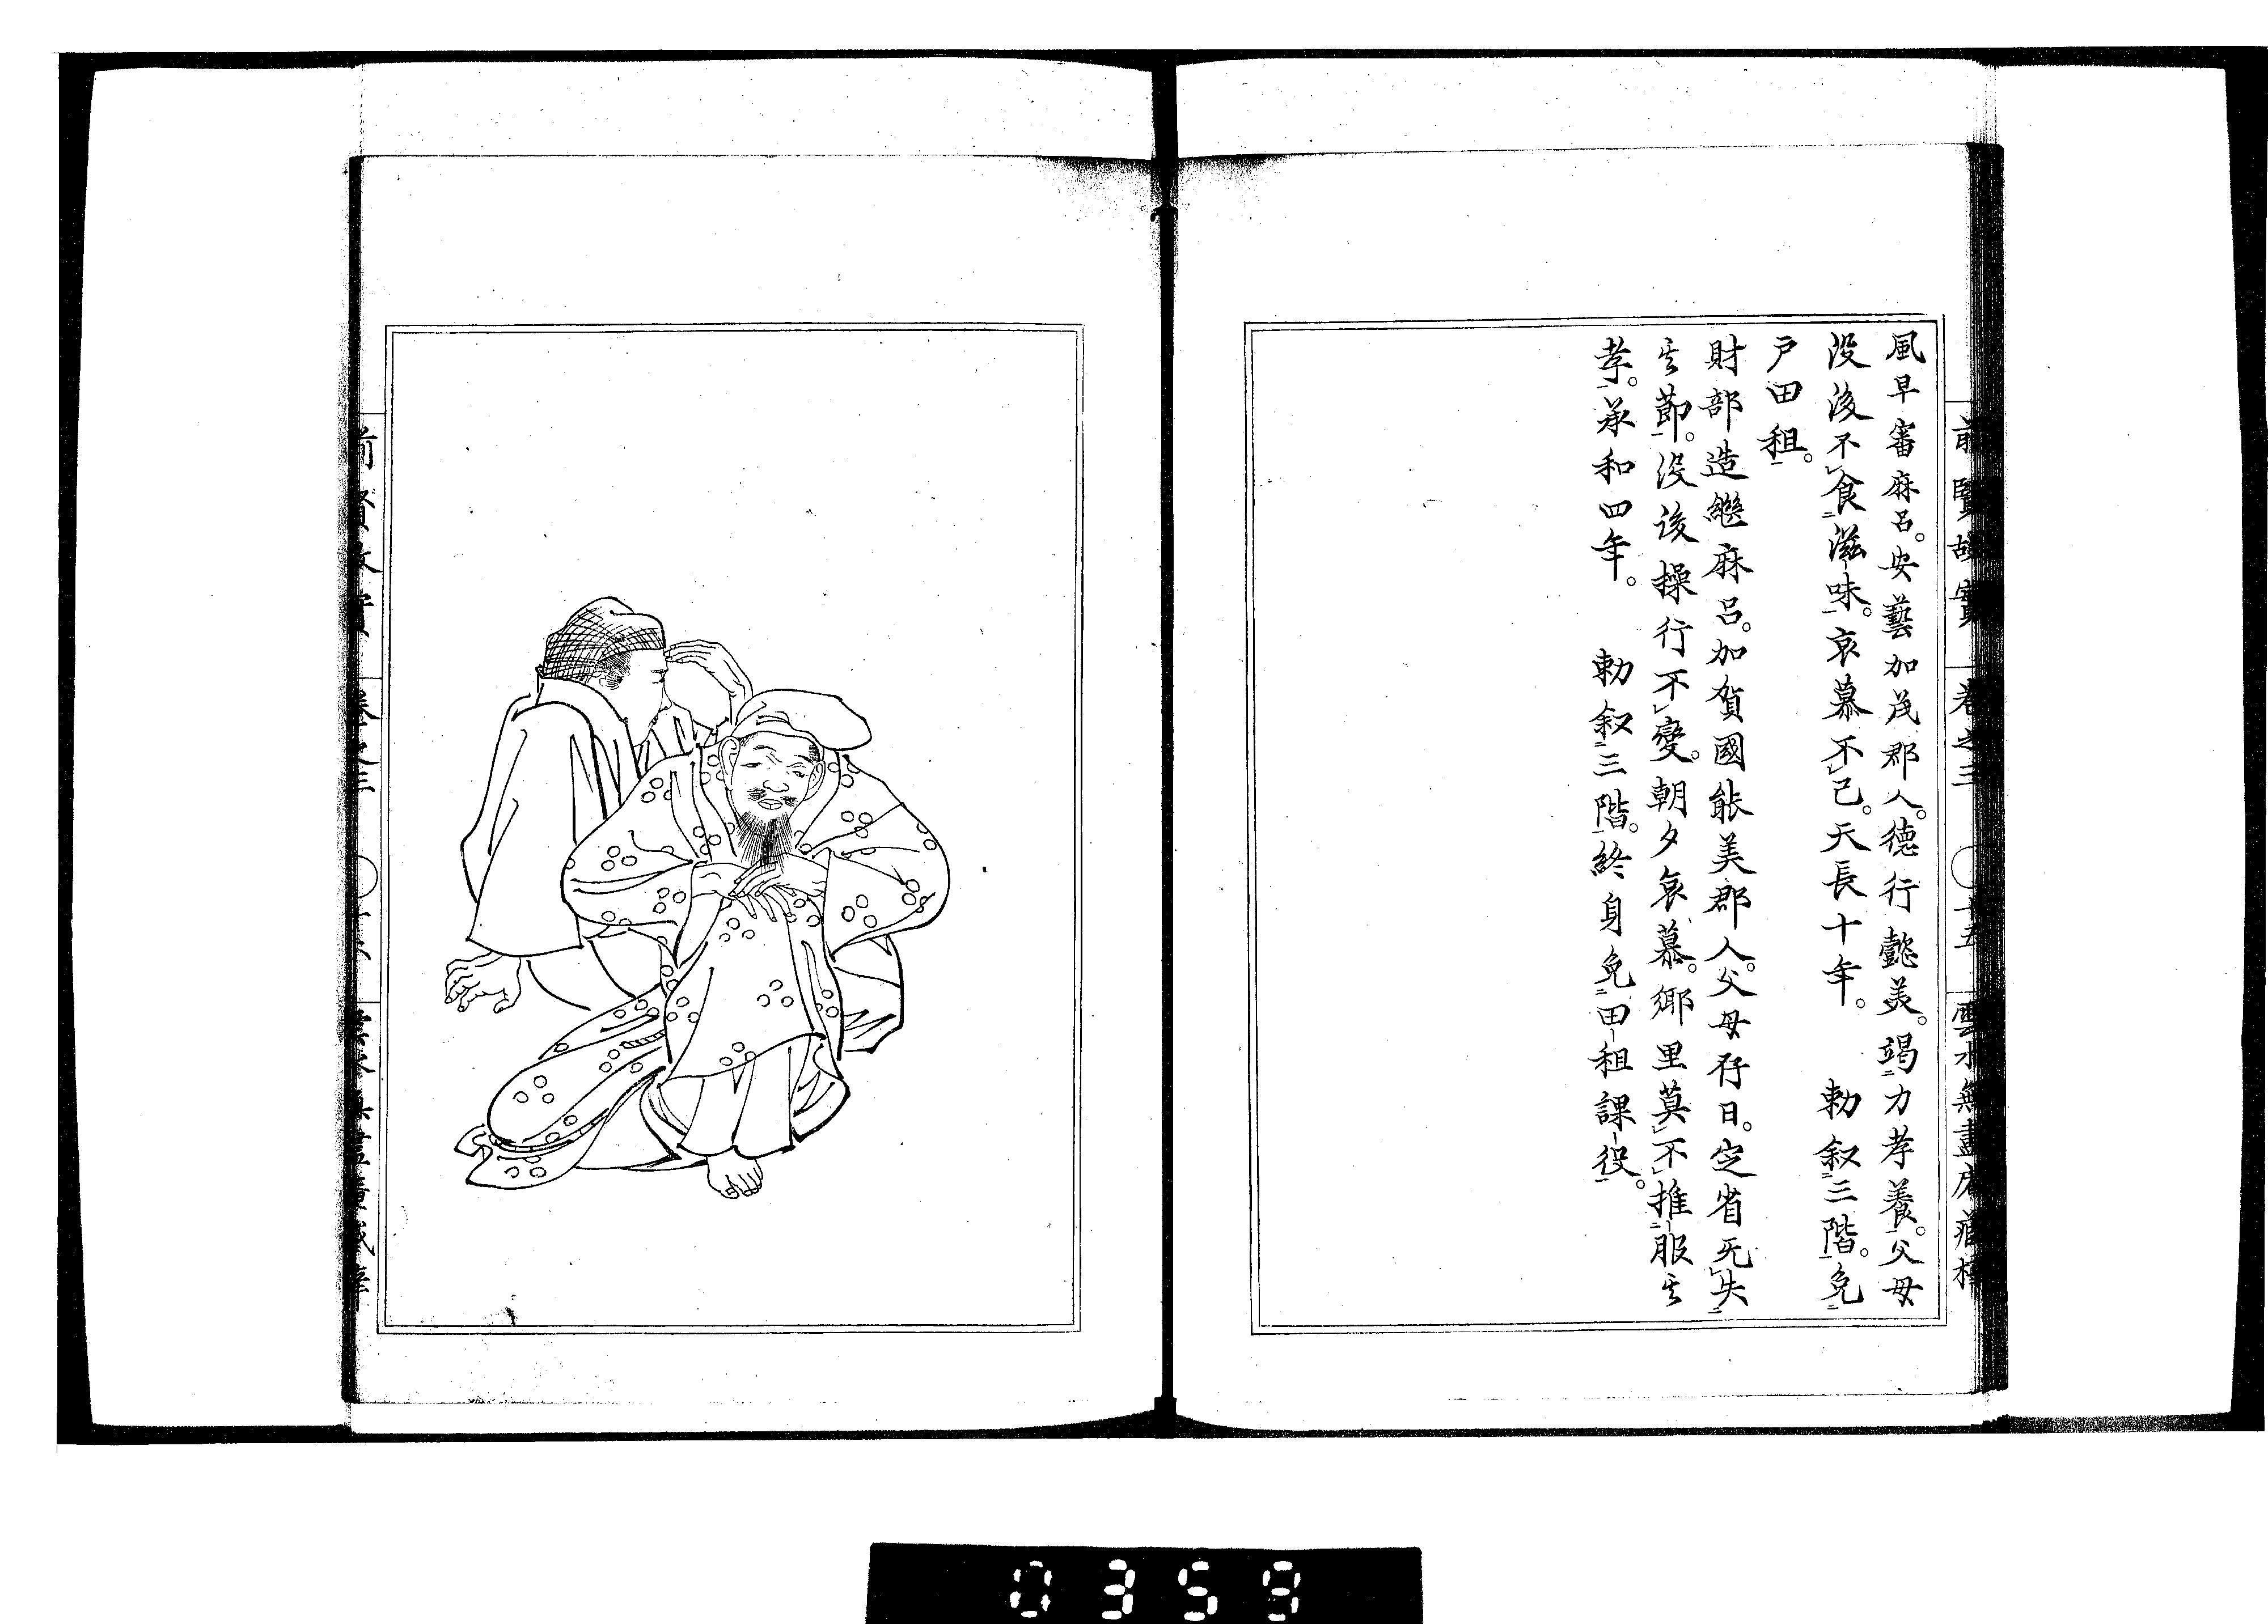 前賢故實 巻之三 ○ 十五 雲水無盡
風早審麻呂。安藝加茂郡人。德行懿美。竭力孝養。父母
没後不食滋味。哀慕不已。天長十年。　勅叙三階。免
戸田租。
財部造繼麻呂。加賀國能美郡人。父母存日。定省无失
其節。没後操行不變。朝夕哀慕。鄉里莫不推服其
孝。承和四年。　勅叙三階。終身免田租課役。
前賢故實 巻之三
0359